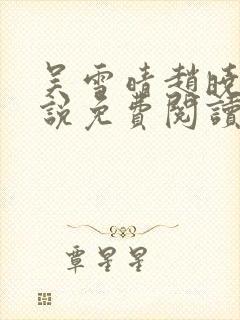 吴雪晴赵晓
說免費閱讀
覃星星